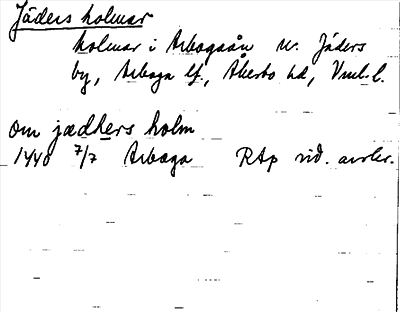 Jäders holmar
holmar i Arbogaån n. Jäders
by, Arboga lf., Åkerbo hd, Vml. l.
om jædhers holm
1440 7/7 Arboga RAp vid. avskr.